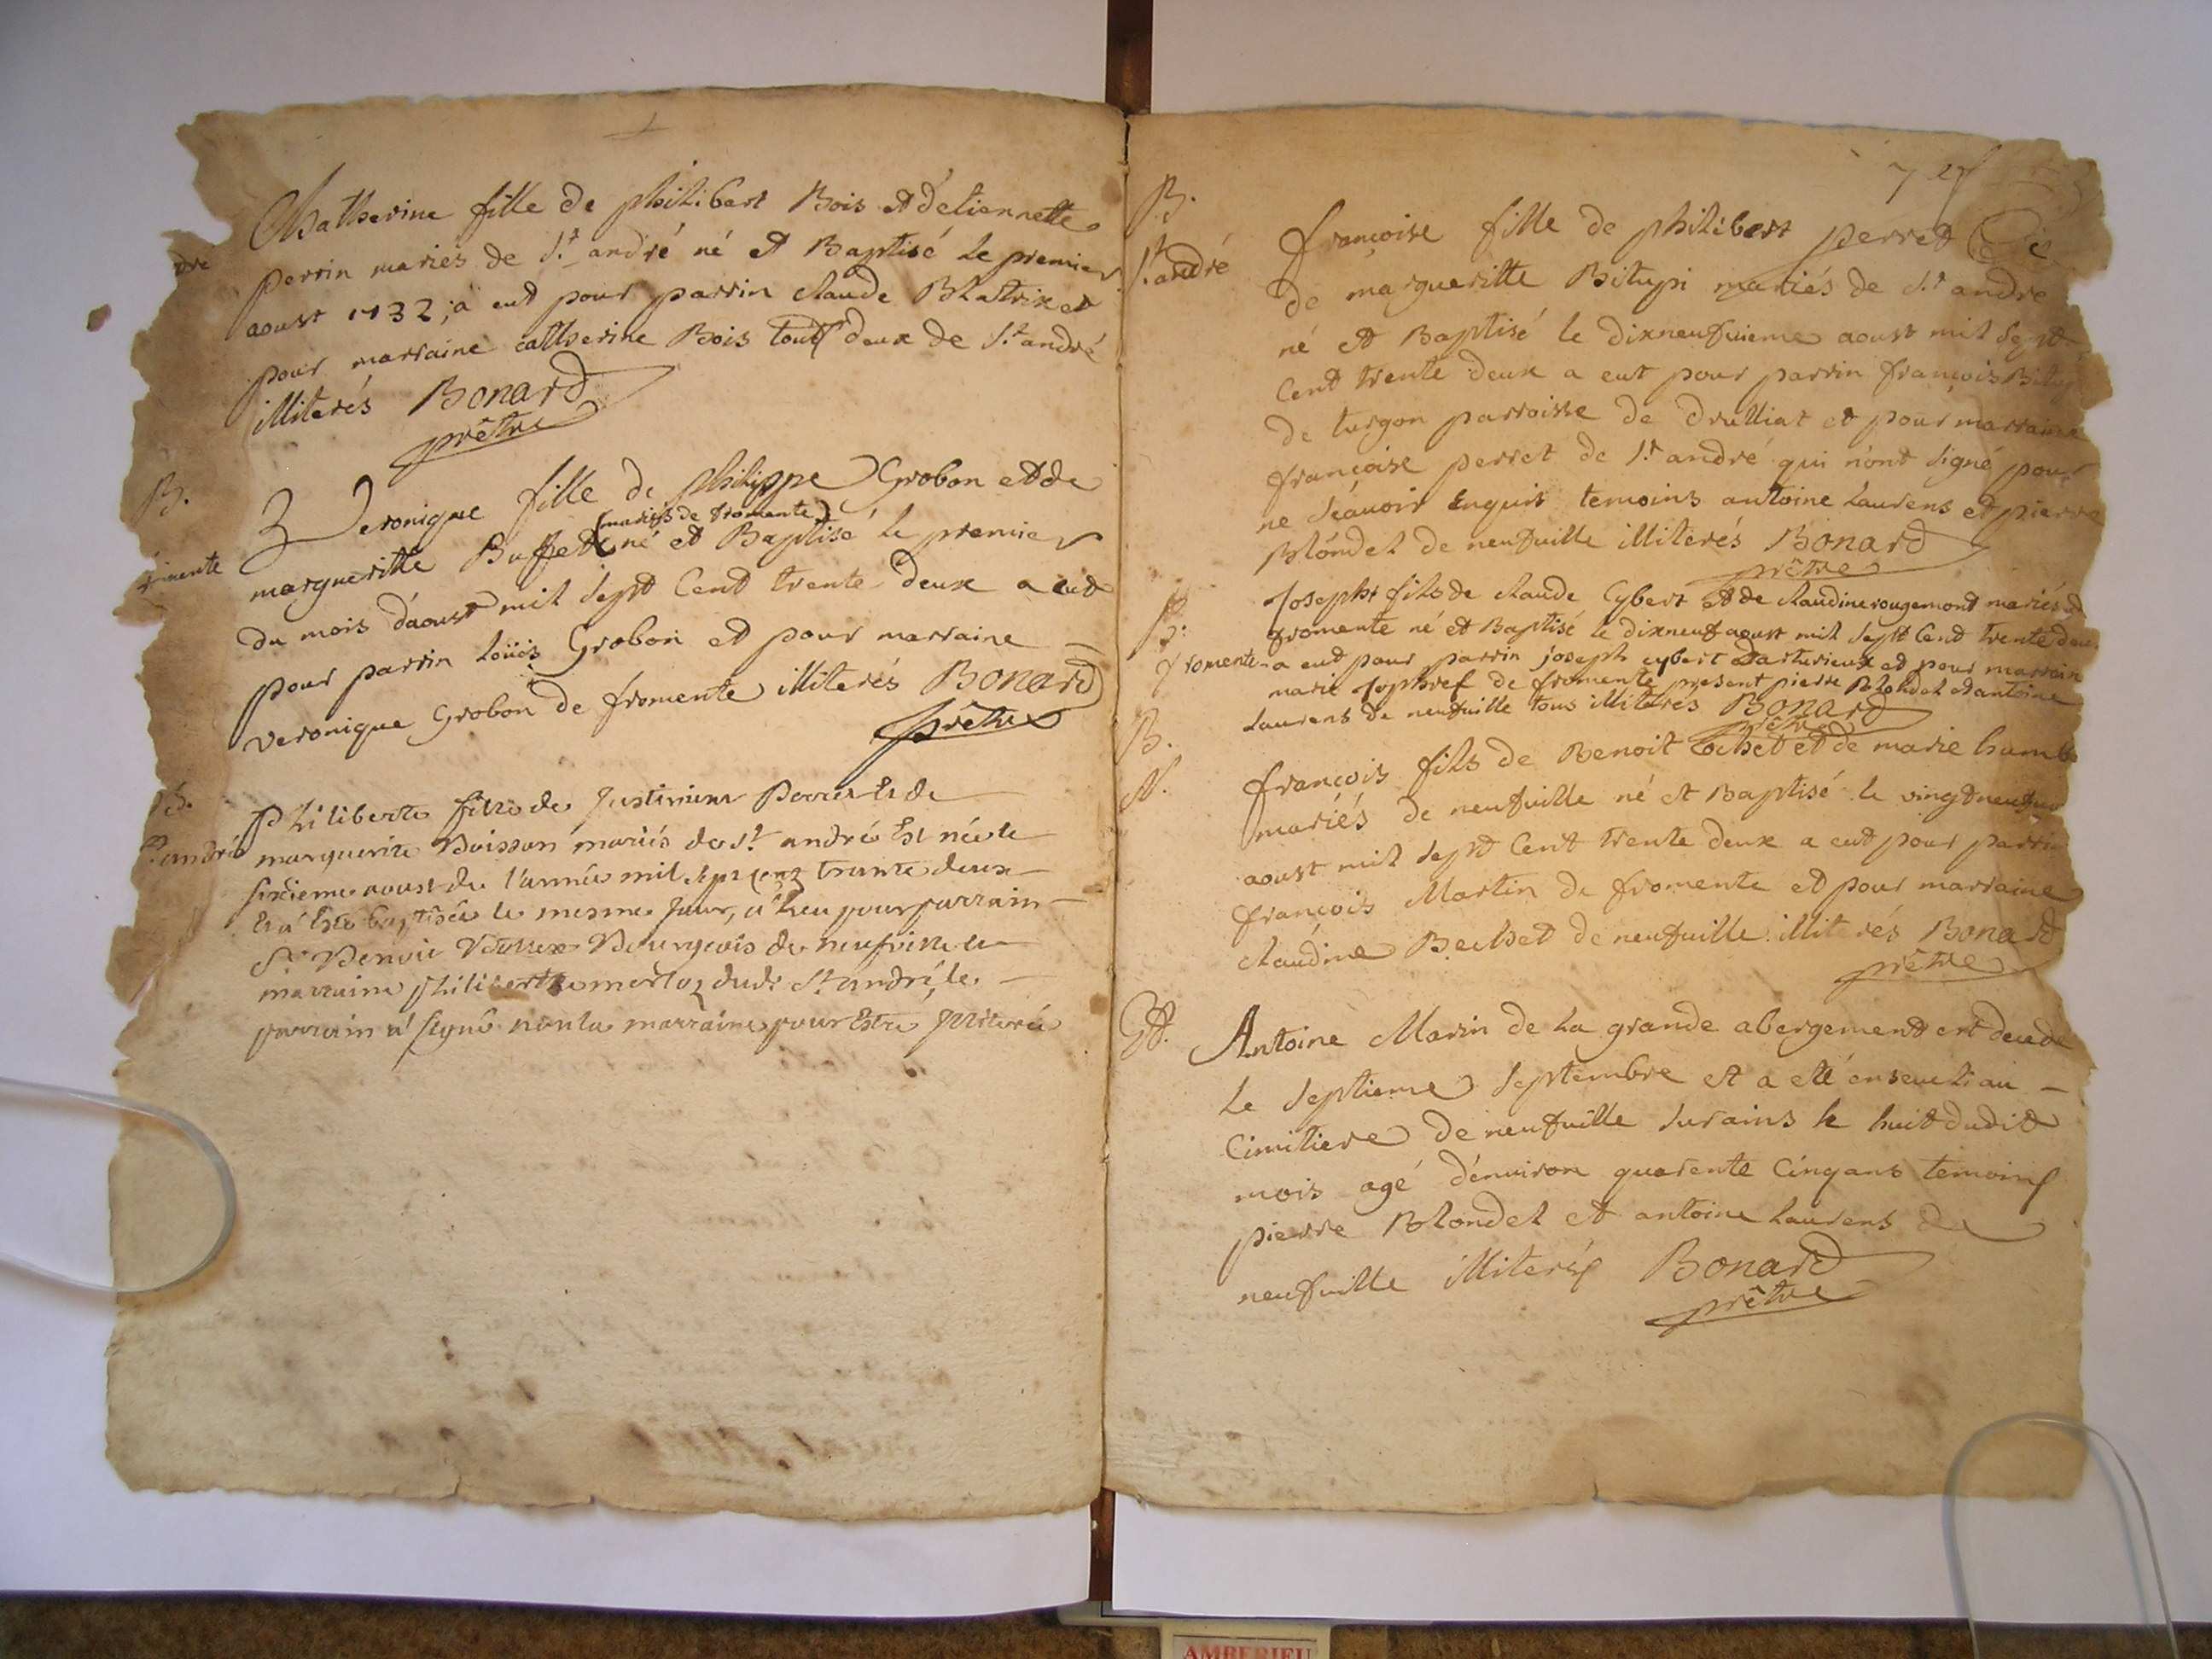 dre
Catherine fille de philibert Bois et d'etiennette
perrin mariés de S.t andré né et Baptisé le premier
aoust 1732, a eut pour parrin claude Blatrix et
pour marraine catherine Bois tout deux de S.t andré
illiterés Bonard
prêtre
B.
fromente
Veronique fille de philippe Grobon et de
(mariés de fromente)
margueritte Buffet né et Baptisé le premier
du mois d'aoust mil sept Cent trente deux a eut
pour parrin Loüis Grobon et pour marraine
veronique Grobon de fromente illiterés Bonard
prêtre
B.
St andré
Philiberte fille de Justinien Perret et de
marguerite Boisson mariés de St andré Est née le
sixieme aoust de l'année mil sept cent trente deux
et a Esté baptisée le mesme jour, a heu pour parrain
Sr Benoit Bourgeois de neufville et
marraine philiberte merloz dudt St andré, le
parrain a signé non la marraine pour Estre illiterée
7
B.
S.t andré
françoise fille de philibert perret Et
de margueritte Bitupi mariés de S.t andré
né et Baptisé le dixneufuieme aoust mil sept
Cent trente deux a eut pour parrin françois
de turgon parroisse de drulliat et pour marraine
françoise perret de S.t andré qui n'ont signé pour
ne sçauoir enquis temoins antoine Laurens et pierre
Blondel de neufuille illiterés Bonard
prêtre
B.
fromente
Joseph fils de claude Cybert et de claudine rougemont mariés de
fromente né et Baptisé le dixneuf aoust mil sept Cent trente deux
a eut pour parrin joseph cybert et pour marraine
marie de fromente present pierre Blondel et antoine
Laurens de neufuille tous illiterés Bonard
prêtre
B.
N.
françois fils de Benoit Cochet et de marie humb
mariés de neufuille né et Baptisé le vingtneuf
aoust mil sept Cent trente deux a eut pour parrin
françois Martin de fromente et pour marraine
claudine Bechet de neufuille illiterés Bonard
prêtre
Et.
Antoine Marin de La grande abergement est decedé
Le septieme septembre et a eté enseueli au
Cimitiere de neufuille sur ains le huit dudit
mois agé d'enuiron quarente Cinq ans temoins
pierre Blondel et antoine Laurens de
neufuille illiterés Bonard
prêtre
AMBERIEU